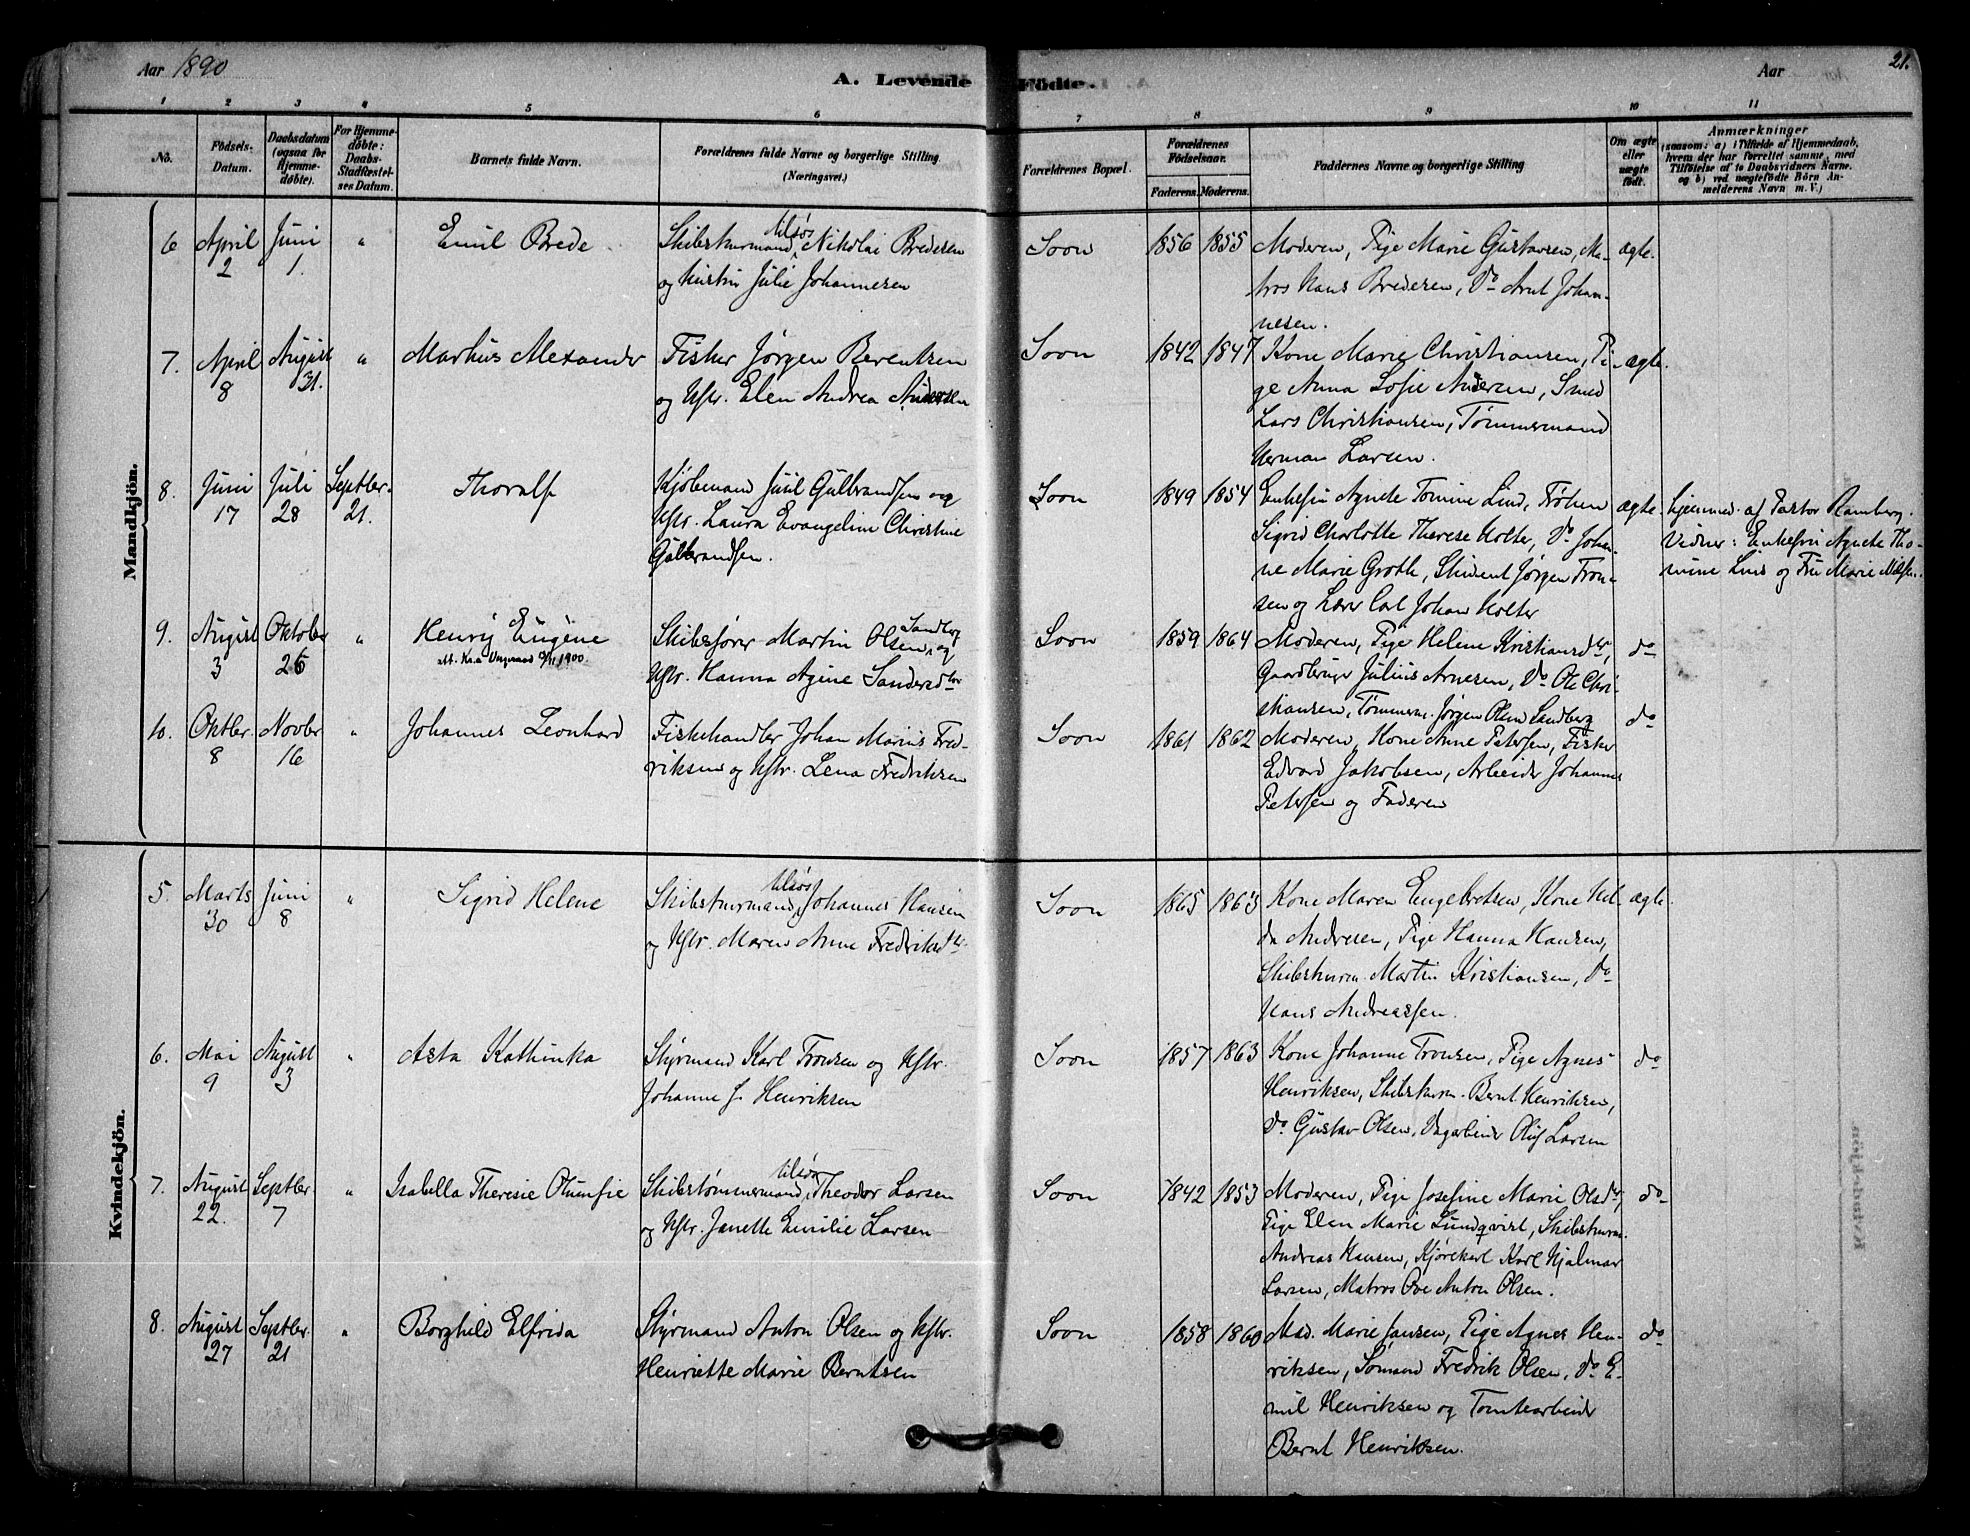 Aar 1890
A. Levende Födte.
Aar
21.
1 2 3 4 5 6 7 8 9 10 11
No.
Födsels-
Datum.
Daabsdatum
(ogsaa for
Hjemme-
døbte).
For Hjemme-
døbte:
Daabs-
Stadfæstel-
ses Datum.
Barnets fulde Navn.
Forældrenes fulde Navne og borgerlige Stilling
(Næringsvei.)
Forældrenes Bopæl.
Forældrenes
Födselsaar.
Faderens. Moderens.
Faddernes Navne og borgerlige Stilling
Om ægte
eller
uægte
födt.
Anmærkninger
(saasom: a) i Tilfælde af Hjemmedaab,
hvem der har forrettet samme, med
Tilföielse af to Daabsvidners Navne.
og b) ved uægtefödte Börn An-
melderens Navn m. V.)
Mandkjön.
6 April 2 Juni 1. " Emil Brede
Skibsturmand tilsøs, Nikolai Bredesen
og Hustru Julie Johannesen
Soon 1856 1855
Moderen, Pige Marie Gustavsen, Ma-
tros Hans Bredesen, Do Arnt Johan-
nesen.
ægte.
7. April 8 August 31. " Markus Alexander
Fisker Jørgen Berentsen
og Hstr. Elen Andrea Andersen
Soon 1842 1847
Kone Marie Christiansen, Pi-
ge Anna Sofie Andersen, Smed
Lars Christiansen, Tømmermand
Herman Larsen.
ægte.
8. Juni 17 Juli 28 Septbr. 21. Thoralf
Kjøbmand Juul Gulbrandsen og
Hstr. Laura Evangeline Christine
Gulbrandsen.
Soon 1849 1854
Enkefru Agnete Tomine Lund, Frøken
Sigrid Charlotte Therese Holter, Do Johan-
ne Marie Groth, Student Jørgen Tron-
sen og Lærer Carl Johan Holter
ægte.
hjemmed. af Pastor Ramberg.
Vidner: Enkefru Agnete Tho-
mine Lund og Fru Marie Nilsen.
9. August 3 Oktober 26 " Henrij Eugène
att. Kra 1900.
Skibsfører Martin Olsen Sandberg, og
Hstr. Hanna Agine Sandersdtr
Soon 1859 1864
Moderen, Pige Helene Kristiansdtr,
Gaardbruger Julius Arnesen, Do Ole Chri-
stiansen, Tømmerm. Jørgen Olsen Sandberg
do
10. Oktbr. 8 Novbr 16 " Johannes Leonhard
Fiskehandler Johan Marius Fred-
riksen og Hstr. Lena Fredriksen
Soon 1861 1862
Moderen, Kone Anne Petersen, Fisker
Edvard Jakobsen, Arbeider Johannes
Petersen og Faderen
do
Kvindekjön.
5. Marts 30 Juni 8 " Sigrid Helene
Skibsturmand tilsøs, Johannes Hansen
og Hstr. Maren Anne Fredriksdtr.
Soon 1865 1863
Kone Maren Engebretsen, Kone Hil-
da Andresen, Pige Hanna Hansen,
Skibsturm. Martin Kristiansen, Do
Hans Andreassen.
ægte.
6. Mai 9 August 3 " Asta Kathinka
Styrmand Karl Tronsen og Hstr.
Johanne J. Henriksen
Soon 1857 1863
Kone Johanne Tronsen, Pige Agnes
Henriksen, Skibsturm. Bernt Henriksen,
Do Gustav Olsen, Veiarbeider Oluf Larsen
do
7. August 22. Septbr. 7 " Isabella Theresie Olumfie
Skibstømmermand tilsøs, Theodor Larsen
og Hstr. Janette Emilie Larsen
Soon 1842 1853
Moderen, Pige Josefine Marie Olsdtr,
Pige Elen Marie Lundqvist, Skibsturm.
Andreas Hansen, Kjørekarl Karl Hjalmar
Larsen, Matros Ove Anton Olsen.
do
8. August 27 Septbr. 21 " Borghild Elfrida
Styrmand Anton Olsen og Hstr.
Henriette Marie Berntsen
Soon 1858 1860
Mad. Marie Jansen, Pige Agnes Hen-
riksen, Sømand Fredrik Olsen, do E-
mil Henriksen og Tomtearbeider
Bernt Henriksen.
do